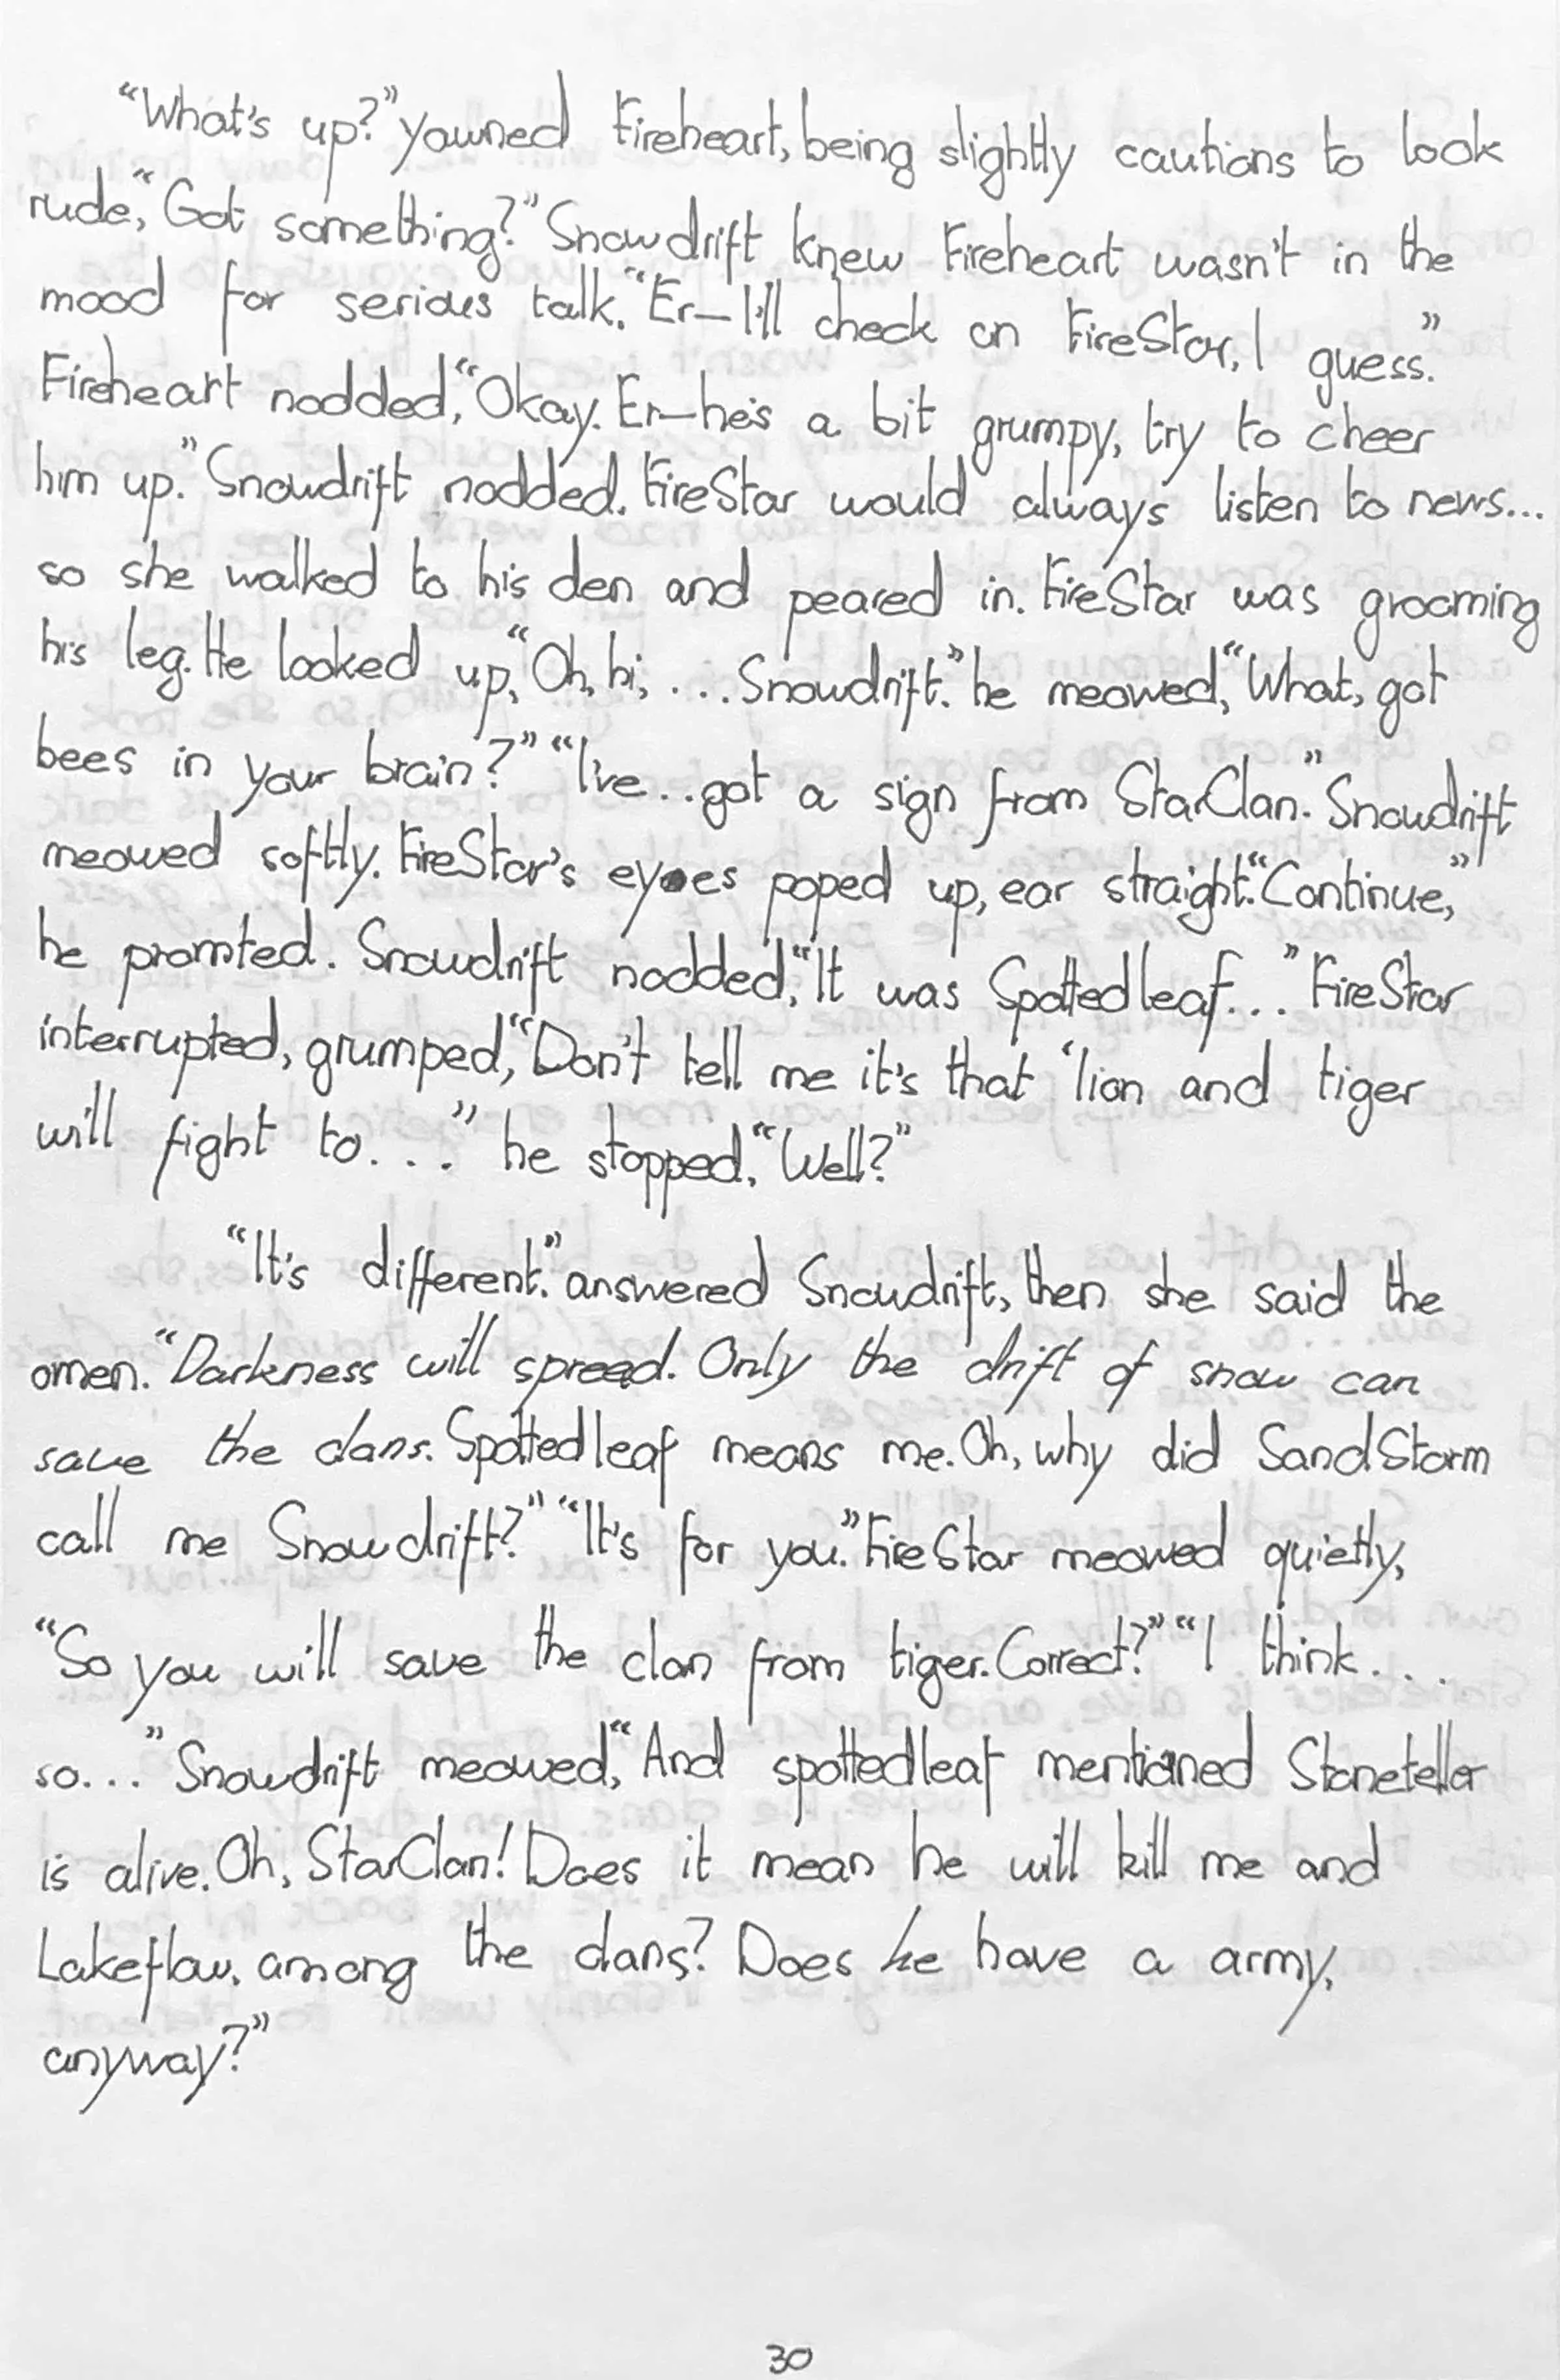 “What's up?” yawned Fireheart, being slightly cautions to look
rude, “Got something?” Snowdrift knew Fireheart wasn't in the
mood for serious talk. “Er—I'll check on FireStar, I guess.”
Fireheart nodded, “Okay. Er—he's a bit grumpy, try to cheer
him up.” Snowdrift nodded. FireStar would always listen to news...
so she walked to his den and peared in. FireStar was grooming
his leg. He looked up, “Oh, hi, ... Snowdrift.” he meowed, “What, got
bees in your brain?” “I've...got a sign from StarClan.” Snowdrift
meowed softly. FireStar's eyes poped up, ear straight. “Continue,”
he promted. Snowdrift nodded, “It was Spottedleaf...” FireStar
interrupted, grumped, “Don't tell me it's that ‘lion and tiger
will fight to...” he stopped, “Well?”
“It's different.” answered Snowdrift, then she said the
omen. “Darkness will spread. Only the drift of snow can
save the clans. Spottedleaf means me. Oh, why did SandStorm
call me Snowdrift?” “It's for you.” FireStar meowed quietly,
“So you will save the clan from tiger. Correct?” “I think...
so...” Snowdrift meowed, “And spottedleaf mentioned Stoneteller
is alive. Oh, StarClan! Does it mean he will kill me and
Lakeflow, among the clans? Does he have a army,
anyway?”
30